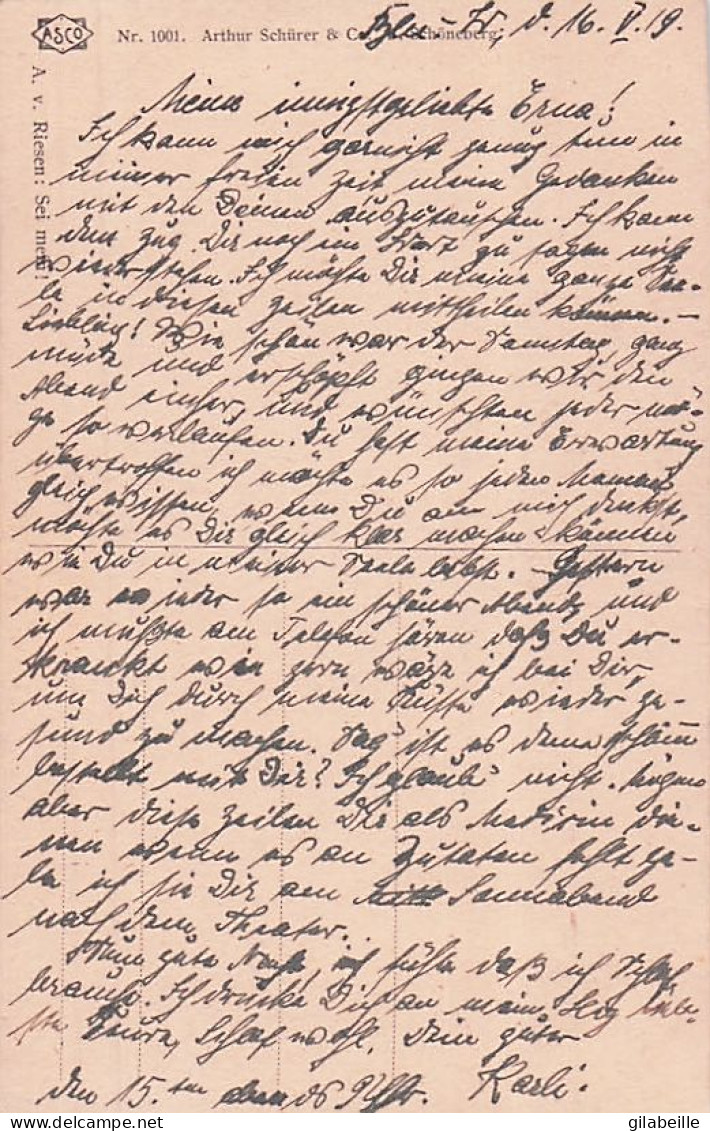 ASCO
Nr. 1001. Arthur Schürer & Co. Schöneberg.
A. v. Riesen: Sei mein!
d. 16. V. 19.
Meine innigstgeliebte Erna!
Ich kann mich garnicht genug tun in
meiner freien Zeit meine Gedanken
mit den Deinen auszutauschen. Ich kann
dem Zug Dir noch ein Wort zu sagen nicht
wiederstehen. Ich möchte Dir meine ganze See-
le in diesen Zeilen mittheilen können. —
Liebling! Wie schön war der Samstag, ganz
müde und erschöpft gingen wir den
Abend einher, und wünschten jeder
so verlaufen. Du hast meine Erwartung
übertroffen ich möchte es so jeden Moment
gleich wissen, wenn Du an mich denkst,
möchte es Dir gleich klar machen können
wie Du in meiner Seele lebst. Gestern
war wieder so ein schöner Abend, und
ich mußte am Telefon hören daß Du er-
krankt wie gern wäre ich bei Dir,
um Dich durch meine Küsse wieder ge-
sund zu machen. Sag' ist es denn schlimm
bestellt mit Dir? Ich glaub' nicht. Mögen
aber diese Zeilen Dir als Medizin die-
nen wenn es an Zutaten fehlt ge-
be ich sie Dir am Sonnabend
nach dem Theater.
Nun gute Nacht, ich fühle daß ich Schlaf
brauch. Ich drücke Dich an mein Herz liebe-
ste Teure, Schlaf wohl. Dein guter
Karli.
den 15. ten abends 9 Uhr.
gilabeille